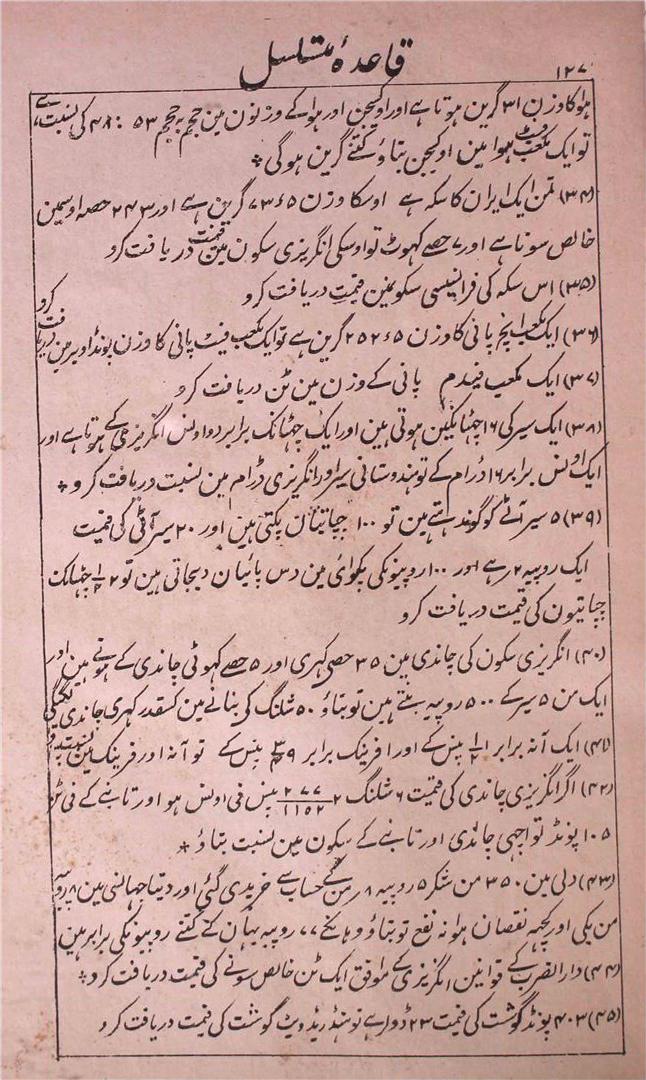 ۱۲۷
قاعدہٴ متسلسل
ہوا کا وزن ۳۱ گرین ہوتا ہے اور اوکیجن اور ہوا کے وزنون مین حجم بحجم ۵۳ : ۴۸ کی نسبت ہے
تو ایک مکعب فٹ ہوا مین اوکیجن بتاؤ کتنے گرین ہوگی *
(۳۴) تمن ایک ایران کا سکہ ہے اوسکا وزن ۷۳٫۵ گرین ہے اور ۲۴۳ حصہ اوسمین
خالص سونا ہے اور ۷ حصے کھوٹ تو اوسکی انگریزی سکون مین قیمت دریافت کرو
(۳۵) اس سکہ کی فرانسیسی سکونمین قیمت دریافت کرو
(۳۶) ایک مکعب انچہ پانی کا وزن ۲۵۲٫۵ گرین ہے تو ایک مکعب فیٹ پانی کا وزن پونڈ اویر مین دریافت کرو
(۳۷) ایک مکعب فیدم پانی کے وزن مین ٹن دریافت کرو
(۳۸) ایک سیر کی ۱۶ چہٹانکین ہوتی ہین اور ایک چہٹانک برابر دو اونس انگریزی کے ہوتا ہے اور
ایک اونس برابر ۱۶ ڈرام کے تو ہندوستانی سیر اور انگریزی ڈرام مین نسبت دریافت کرو *
(۳۹) ۵ سیر آٹے کو گوندہتے ہین تو ۱۰۰ چپاتیان پکتی ہین اور ۲۰ سیر آٹی کی قیمت
ایک روپیہ ۲ رہے اور ۱۰۰ روپیونکی پکوائی مین دس پائیان دیجاتی ہین تو ۲ ۱/۲ چہٹانک
چپاتیون کی قیمت دریافت کرو
(۴۰) انگریزی سکون کی چاندی مین ۳۵ حصی کہری اور ۵ حصے کہوٹی چاندی کے ہوتے ہین اور
ایک من ۵ سیر کے ۵۰۰ روپیہ بنتے ہین تو بتاؤ ۵۰ شلنگ کی بنانے مین کسقدر کہری چاندی لگیگی
(۴۱) ایک آنہ برابر ۱ ۱/۲ پنس کے اور ا فرینک برابر ۹ ۳/۴ پنس کے تو آنہ اور فرینک مین نسبت
(۴۲) اگر انگریزی چاندی کی قیمت ۶ شلنگ ۲ ۲۷۷/۱۱۵۲ پنس فی اونس ہو اور تانبے کے فی ٹن
۱۰۵ پونڈ تو اچہی چاندی اور تانبے کے سکون مین نسبت بتاؤ *
(۴۳) دلی مین ۳۵۰ من شکر ۵ روپیہ ۸ ر من کے حساب سے خریدی گئی اور دتیا جہانسی مین ۸ روپیہ
من بکی اور کچہہ نقصان ہوا نہ نفع تو بتاؤ وہانکے ۷۷ روپیہ یہان کے کتنے روپیونکی برابر ہین
(۴۴) دارالضرب کے قوانین انگریزی کے موافق ایک ٹن خالص سونے کی قیمت دریافت کرو *
(۴۵) ۴۰۳ پونڈ گوشت کی قیمت ۲۳ ڈوار ہے تو ہنڈریڈویٹ گوشت کی قیمت دریافت کرو